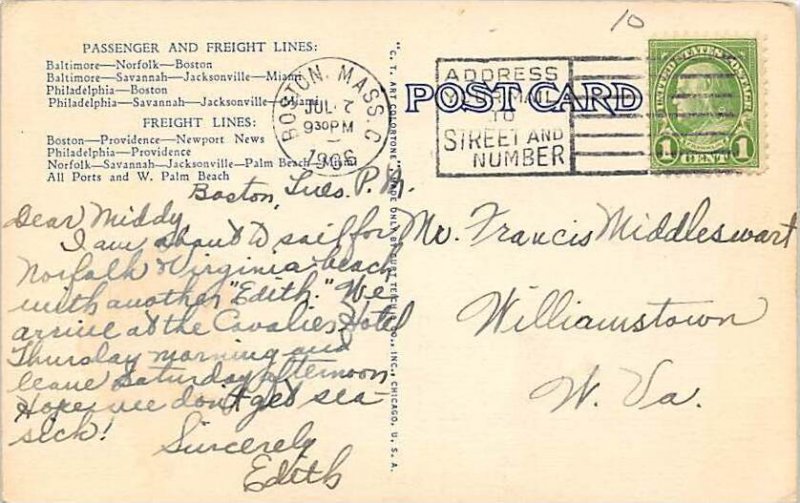 PASSENGER AND FREIGHT LINES:
Baltimore—Norfolk—Boston
Baltimore—Savannah—Jacksonville—Miami
Philadelphia—Boston
Philadelphia—Savannah—Jacksonville—Miami
FREIGHT LINES:
Boston—Providence—Newport News
Philadelphia—Providence
Norfolk—Savannah—Jacksonville—Palm Beach—Miami
All Ports and W. Palm Beach
Boston, Tues. P.M.
Dear Middy
I am about to sail for
Norfolk & Virginia beach
with another "Edith." We
arrive at the Cavalier Hotel
Thursday morning and
leave Saturday afternoon
Hope we don't get sea-
sick!
Sincerely
Edith
"C. T. ART COLORTONE" MADE ONLY BY CURT TEICH & CO., INC., CHICAGO, U. S. A.
BOSTON, MASS. C
JUL 7
9 30 PM
POST CARD
ADDRESS
YOUR MAIL
TO
STREET AND
NUMBER
10
UNITED STATES POSTAGE
1 CENT 1
Mr. Francis Middleswart
Williamstown
W. Va.